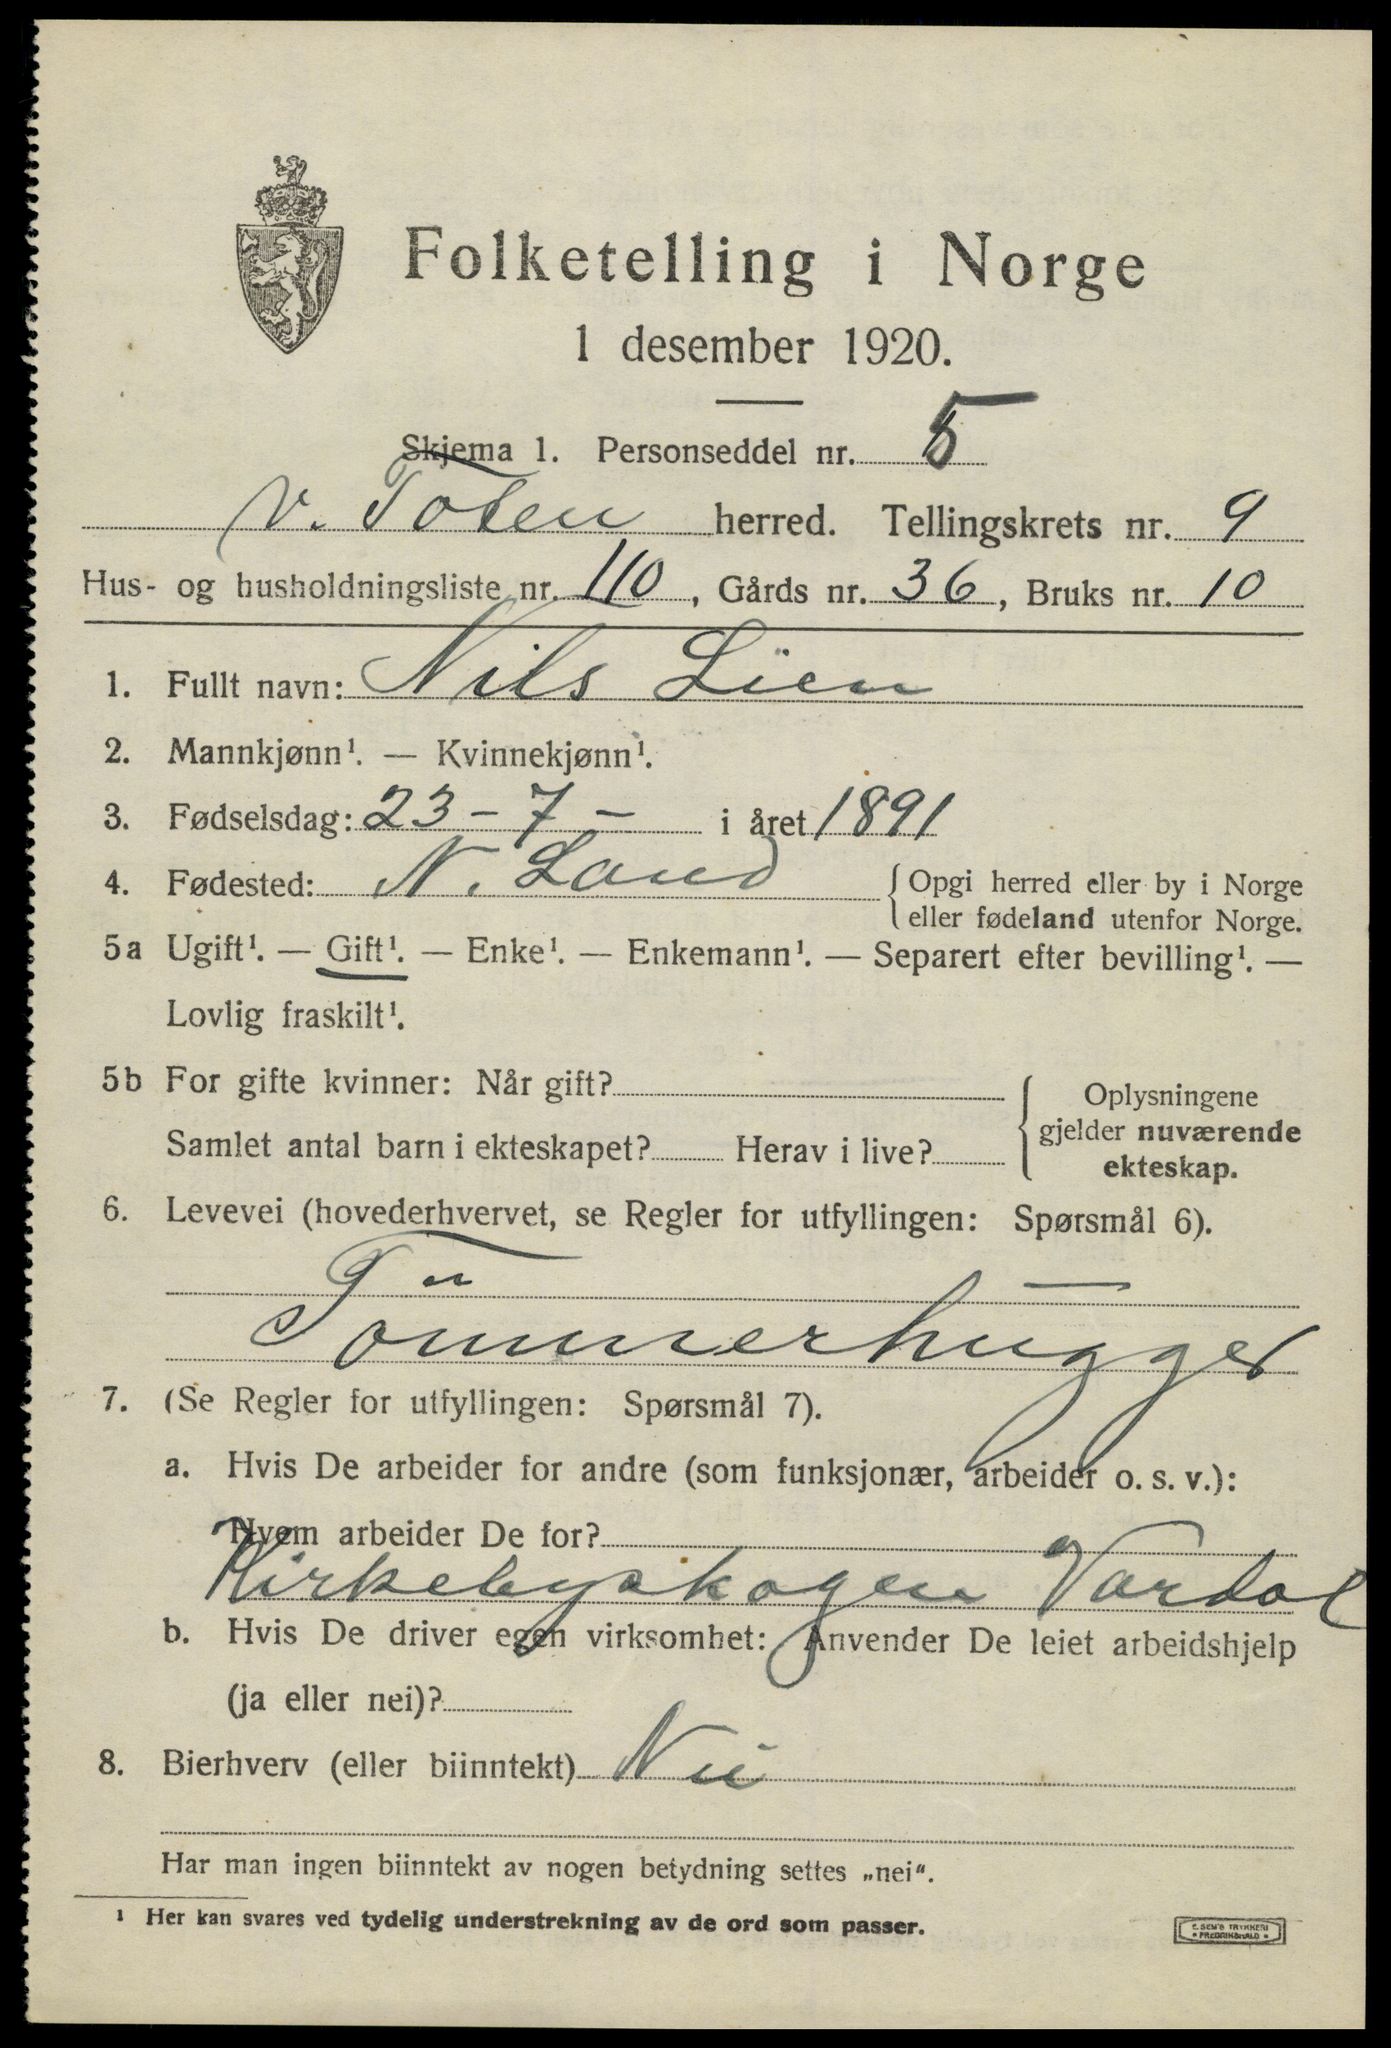 Folketelling i Norge
1 desember 1920.
Skjema 1. Personseddel nr. 5
V. Toten herred. Tellingskrets nr. 9
Hus- og husholdningsliste nr. 110, Gårds nr. 36, Bruks nr. 10
1. Fullt navn: Nils Lien
2. Mannkjønn¹. — Kvinnekjønn¹.
3. Fødselsdag: 23-7- i året 1891
4. Fødested: N. Land {Opgi herred eller by i Norge
eller fødeland utenfor Norge.
5a Ugift¹. — Gift¹. — Enke¹. — Enkemann¹. — Separert efter bevilling¹. —
Lovlig fraskilt¹.
5b For gifte kvinner: Når gift? { Oplysningene
gjelder nuværende
Samlet antal barn i ekteskapet? Herav i live?
ekteskap.
6. Levevei (hovederhvervet, se Regler for utfyllingen: Spørsmål 6).
Tömmerhugger
7. (Se Regler for utfyllingen: Spørsmål 7).
a. Hvis De arbeider for andre (som funksjonær, arbeider o. s. v.):
Hvem arbeider De for?
Kirkebyskogen Vardal
b. Hvis De driver egen virksomhet: Anvender De leiet arbeidshjelp
(ja eller nei)?
8. Bierhverv (eller biinntekt) Nei
Har man ingen biinntekt av nogen betydning settes „nei“.
¹ Her kan svares ved tydelig understrekning av de ord som passer.
E. SEM'S TRYKKERI
* FREDRIKSHALD *